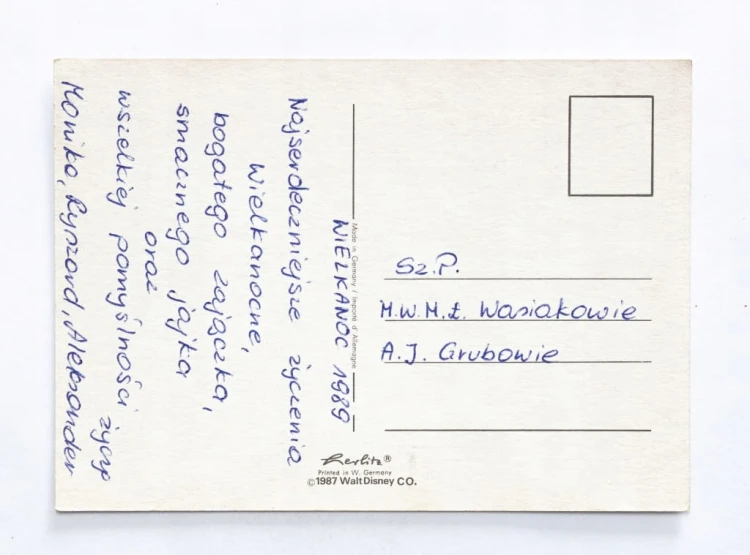 WIELKANOC 1989
Najserdeczniejsze życzenia
Wielkanocne,
bogatego zajączka,
smacznego jajka
oraz
wszelkiej pomyślności życzą
Monika, Ryszard, Aleksander
Made in Germany / Importé d'Allemagne
Sz.P.
M.W.M.Ł. Wasiakowie
A.J. Grubowie
herlitz®
Printed in W. Germany
©1987 Walt Disney CO.